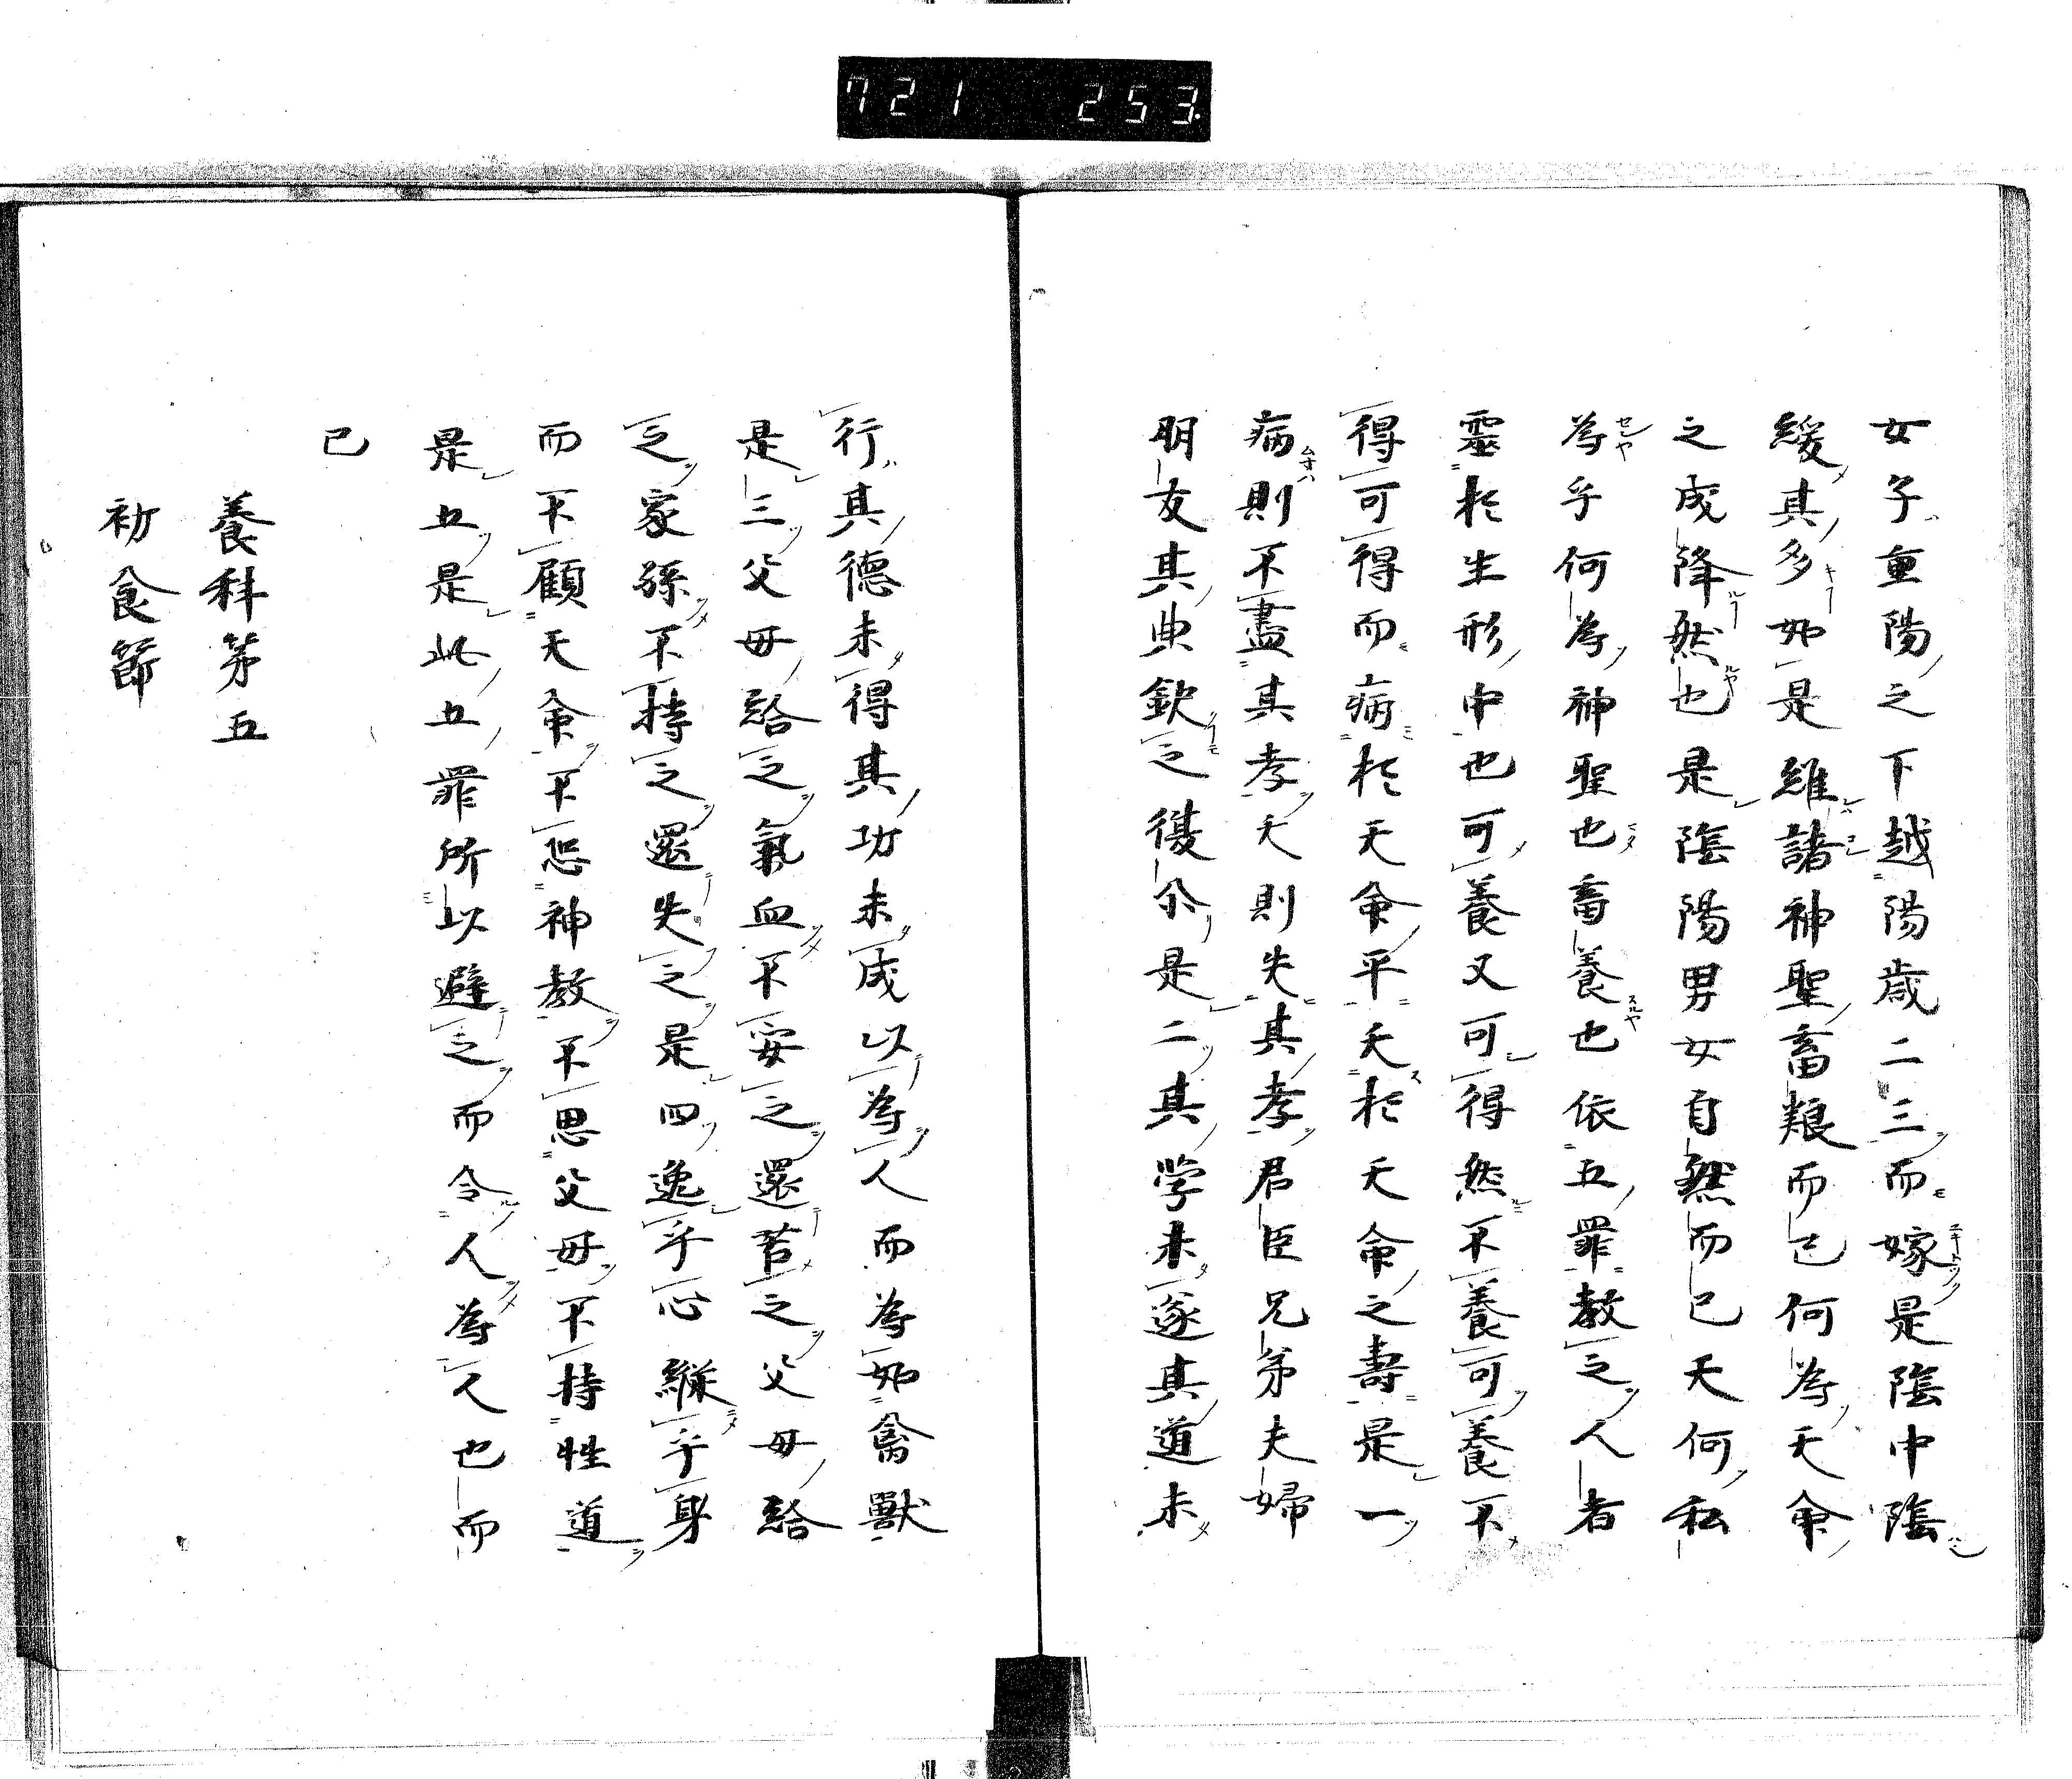 721 253
女子重陽之下越陽歳二三而嫁是陰中陰
緩其多如是雖諸神聖畜粮而已何為天命
之成降然也是陰陽男女自然而已天何私
為乎何為神聖也畜養也依五罪教之人者
霊於生形中也可養又可得然不養可養不
得可得而病於天命平夭於天命之壽是一
病則不盡其孝夭則失其孝君臣兄弟夫婦
朋友其典欽之復尒是二其学未遂其道未
行其徳未得其功未成以為人而為如禽獣
是三父母給之氣血不安之還苦之父母給
之家孫不持之還失之是四逸乎心縦乎身
而不顧天命不恐神教不思父母不持性道
是五是此五罪所以避之而令人為人也而
已
養科第五
初食節